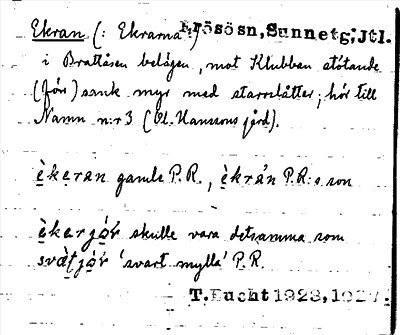 Ekran (: Ekrarna) Frösösn, Sunnetg; Jtl.
i Brattåsen belägen, mot Klubben stötande
(Jör) sank myr med starrslåtter; hör till
Namn n:r 3 (Ol. Hanssons jord).
èkeran gamle P.R., èkrán P.R:s son
èkerjór skulle vara detsamma som
svàtjór 'svart mylla' P.R.
T. Bucht 1923, 1927.